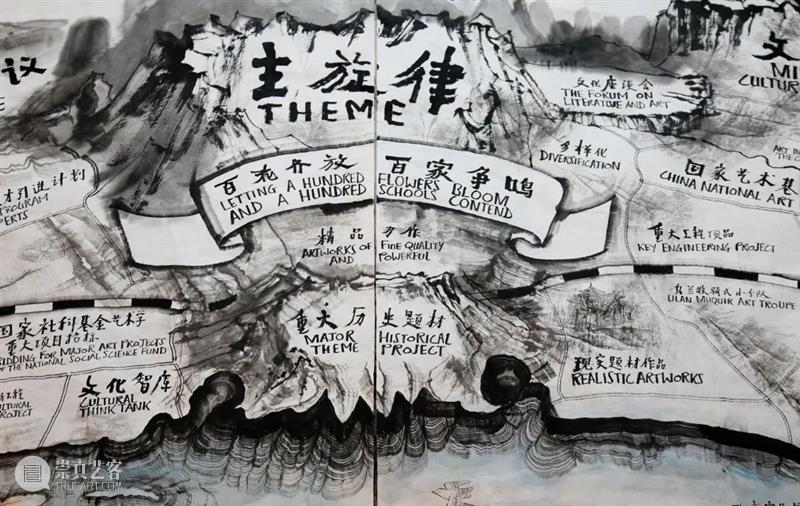 议
主旋律
THEME
文
MI
CULTUR
文化座谈会
THE FORUM ON
LITERATURE AND ART
多样化
DIVERSIFICATION
ART IN
THE
才引进计划
PROGRAM
PERTS
百花齐放 百家争鸣
LETTING A HUNDRED FLOWERS BLOOM
AND A HUNDRED SCHOOLS CONTEND
国家艺术基
CHINA NATIONAL ART
精品力作
ARTWORKS OF FINE QUALITY
AND POWERFUL
重大工程项目
KEY ENGINEERING PROJECT
乌兰牧骑式小分队
ULAN MUQUIR ART TROUPE
国家社科基金艺术学
重大项目招标
BIDDING FOR MAJOR ART PROJECTS
OF THE NATIONAL SOCIAL SCIENCE FUND
重大历史题材
MAJOR HISTORICAL
THEME PROJECT
现实题材作品
REALISTIC ARTWORKS
文化智库
CULTURAL
THINK TANK
工程
CULTURAL
PROJECT
崇真艺客
TRUEART.COM